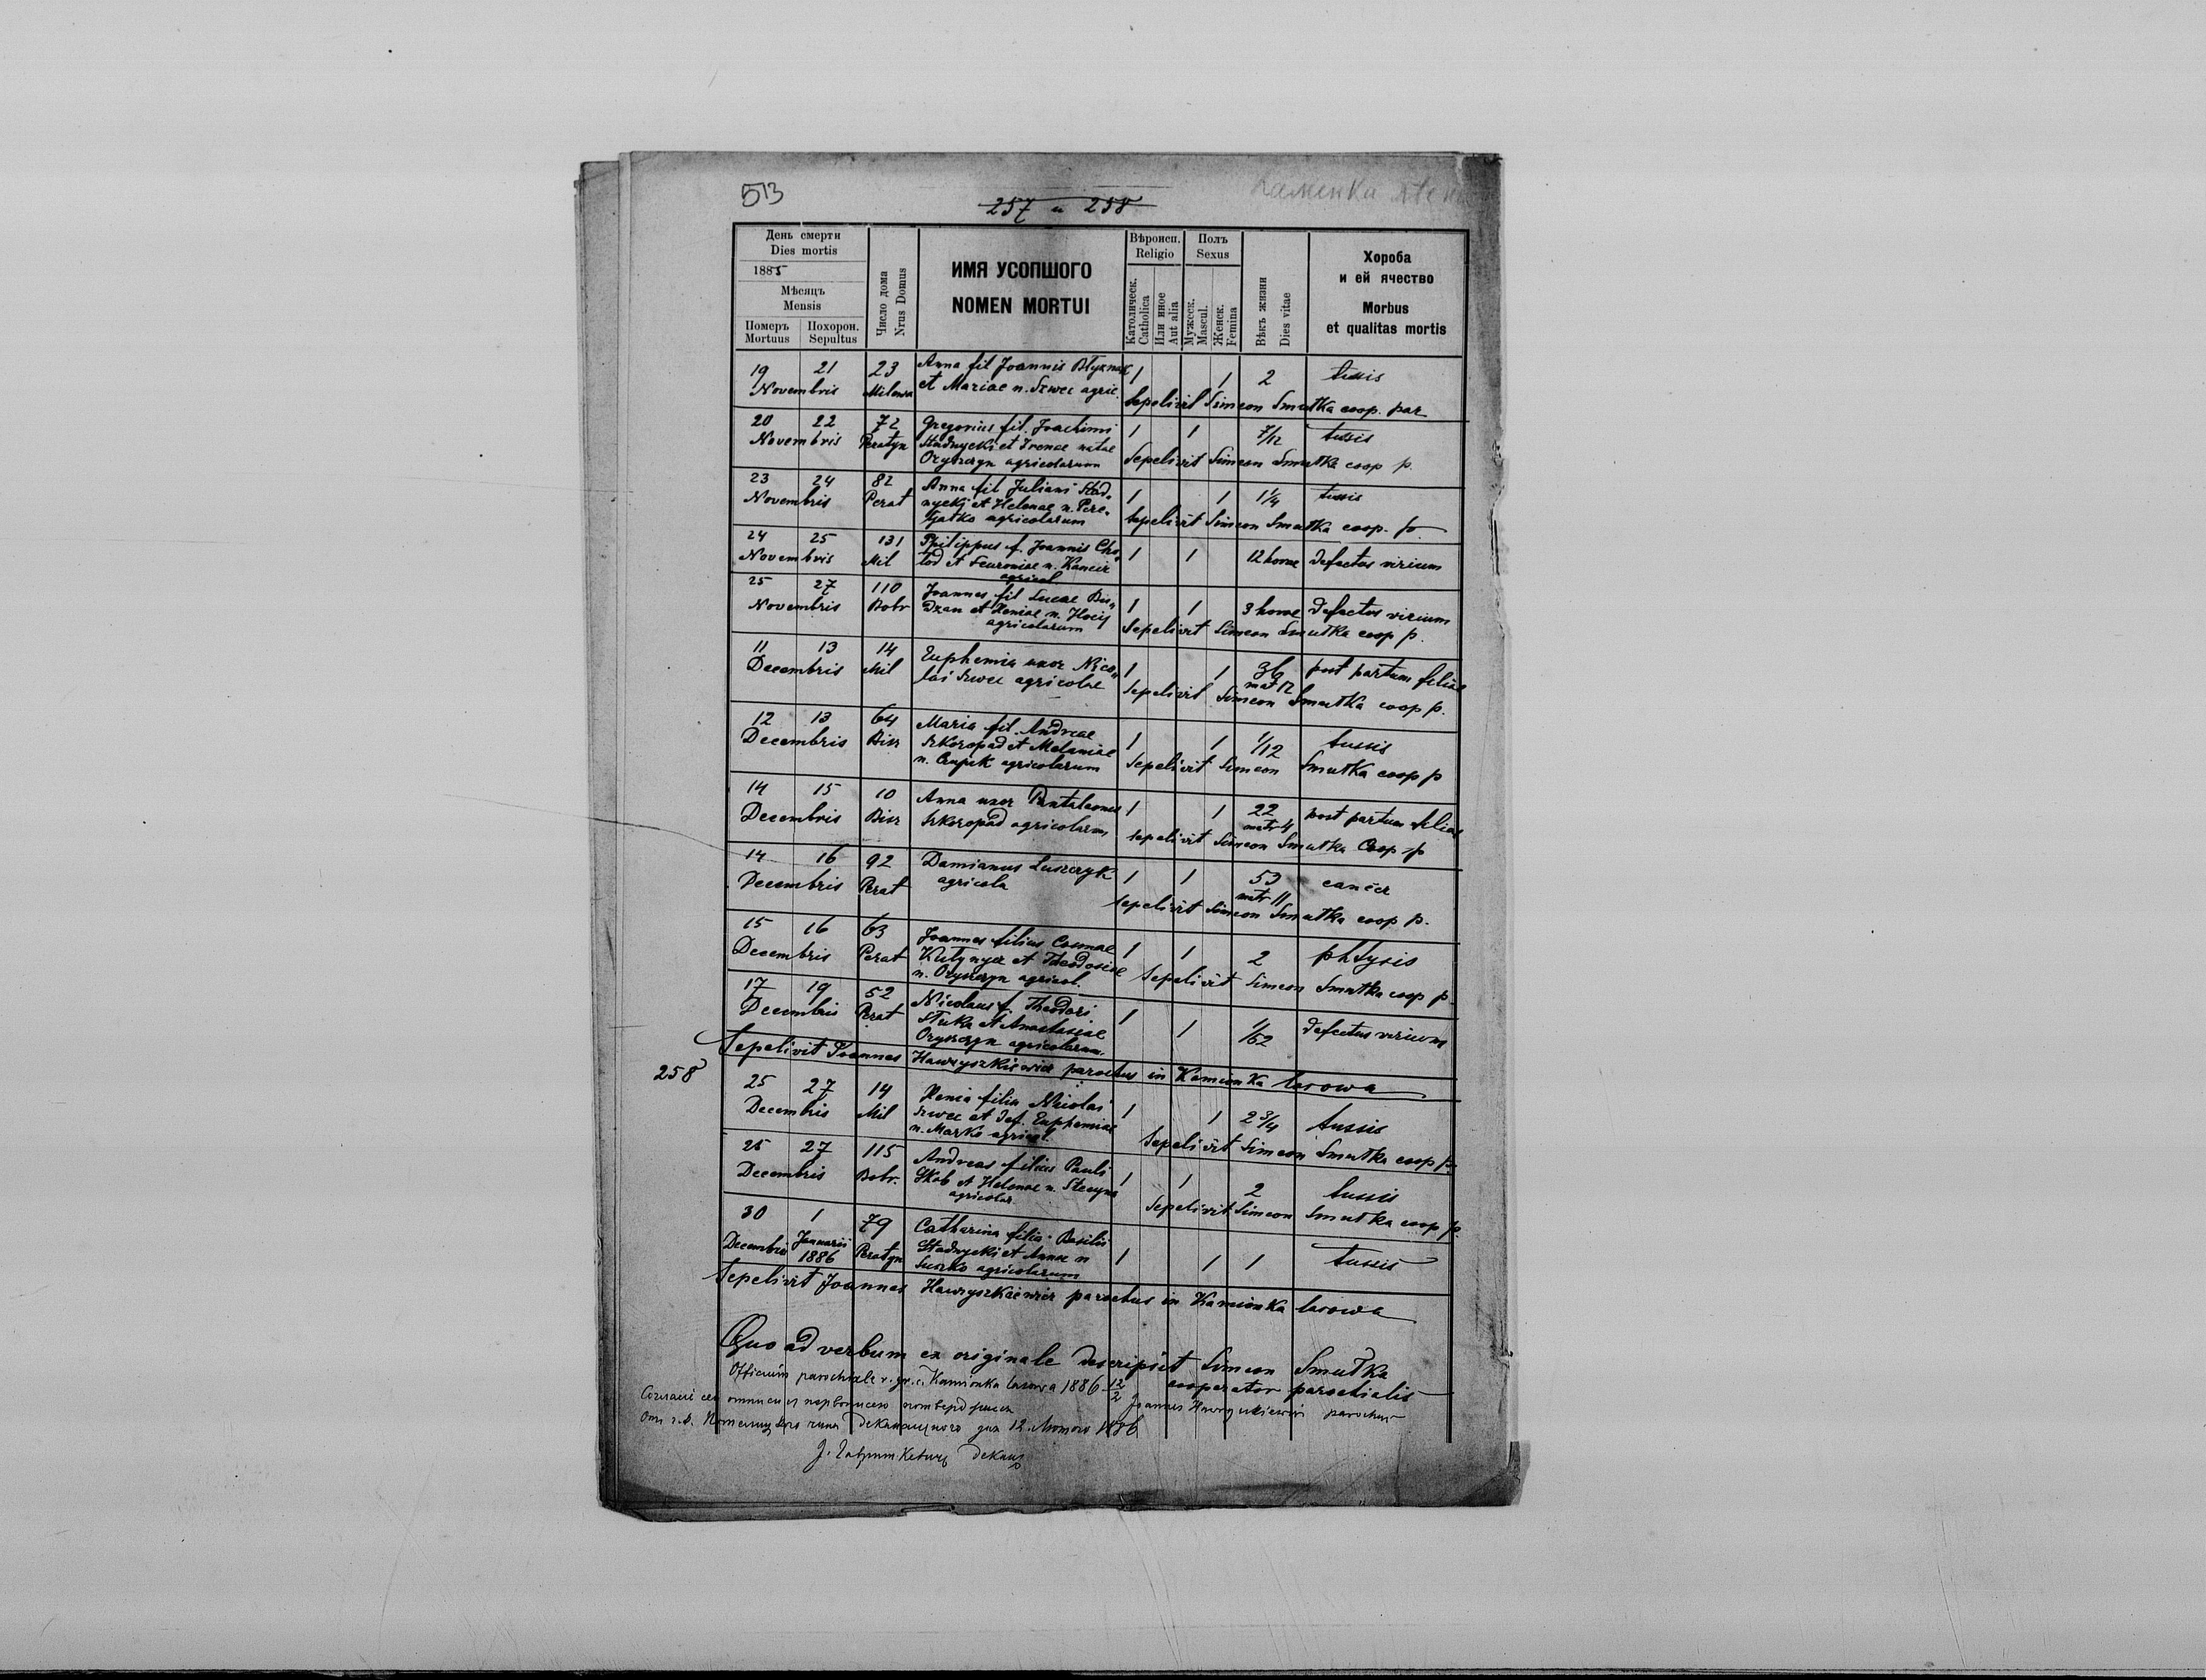 513
257 и 258
День смерти
Dies mortis
1885
Мѣсяцъ
Mensis
Померъ Mortuus
Похорон. Sepultus
Число дома
Nrus Domus
ИМЯ УСОПШОГО
NOMEN MORTUI
Вѣроисп.
Religio
Католическ.
Catholica
Или иное
Aut alia
Полъ
Sexus
Мужеск.
Mascul.
Женск.
Femina
Вѣкъ жизни
Dies vitae
Хороба
и ей ячество
Morbus
et qualitas mortis
19 21 23 Anna fil Joannis 1 1 2 tussis
Novembris et Mariae n. Szwec agric.
Sepelivit Simeon Smutka coop. par
20 22 72 Gregorius fil. Joachimi 1 1 7/12 tussis
Novembris Peratyn Stadnycki et Irenae natae
Oryszczyn agricolarum Sepelivit Simeon Smutka coop p.
23 24 82 Anna fil Juliani Stad- 1 1 1 1/4 tussis
Novembris Perat nycki et Helenae n. Pere-
gatko agricolarum Sepelivit Simeon Smutka coop. p.
24 25 131 Philippus f. Joannis Cho- 1 1 12 horae defectus virium
Novembris Mil lod et n.
agricol.
25 27 110 Joannes fil Lucae 1 1 3 horae defectus virium
Novembris Bobr et Xeniae n.
agricolarum Sepelivit Simeon Smutka coop p.
11 13 14 Euphemia uxor Nico- 1 1 36 post partum filiae
Decembris Mil lai Szwec agricolae matr 12
Sepelivit Simeon Smutka coop p.
12 13 64 Maria fil. Andreae 1 1 1/12 tussis
Decembris Szkoropad et Melaniae
n. agricolarum Sepelivit Simeon Smutka coop p
14 15 10 Anna uxor Pantaleonis 1 1 22 post partum filiae
Decembris Szkoropad agricolarum matr 4
Sepelivit Simeon Smutka Coop p
14 16 92 Damianus Luszczyk 1 1 53 cancer
Decembris Perat agricola matr 11
Sepelivit Simeon Smutka coop p.
15 16 63 Joannes filius Cosmae 1 1 2 phtysis
Decembris Perat et Theodosiae
n. Oryszczyn agricol. Sepelivit Simeon Smutka coop p
17 19 52 Nicolaus f. Theodori 1 1 1/52 defectus virium
Decembris Perat Stuka et Anastasiae
Oryszczyn agricolarum.
Sepelivit Joannes Hawryszkiewicz parochus in Kamionka lasowa
258
25 27 14 Xenia filia Nicolai 1 1 2 3/4 tussis
Decembris Mil Szwec et def. Euphemiae
n. Marko agricol. Sepelivit Simeon Smutka coop p.
25 27 115 Andreas filius Pauli 1 1 2 tussis
Decembris Bobr. Skob et Helenae n.
agricolar. Sepelivit Simeon Smutka coop p.
30 1 79 Catharina filia Basilii 1 1 1 tussis
Decembris Januarii 1886 Peratyn Stadnycki et Annae n
Suszko agricolarum
Sepelivit Joannes Hawryszkiewicz parochus in Kamionka lasowa
Quo ad verbum ex originale descripsit Simeon Smutka
cooperator parochialis
Officium parochiale r. gr. c. Kamionka lasowa 1886 12/2
Joannes Hawryszkiewicz parochus
деканального дня 12. Лютого 1886